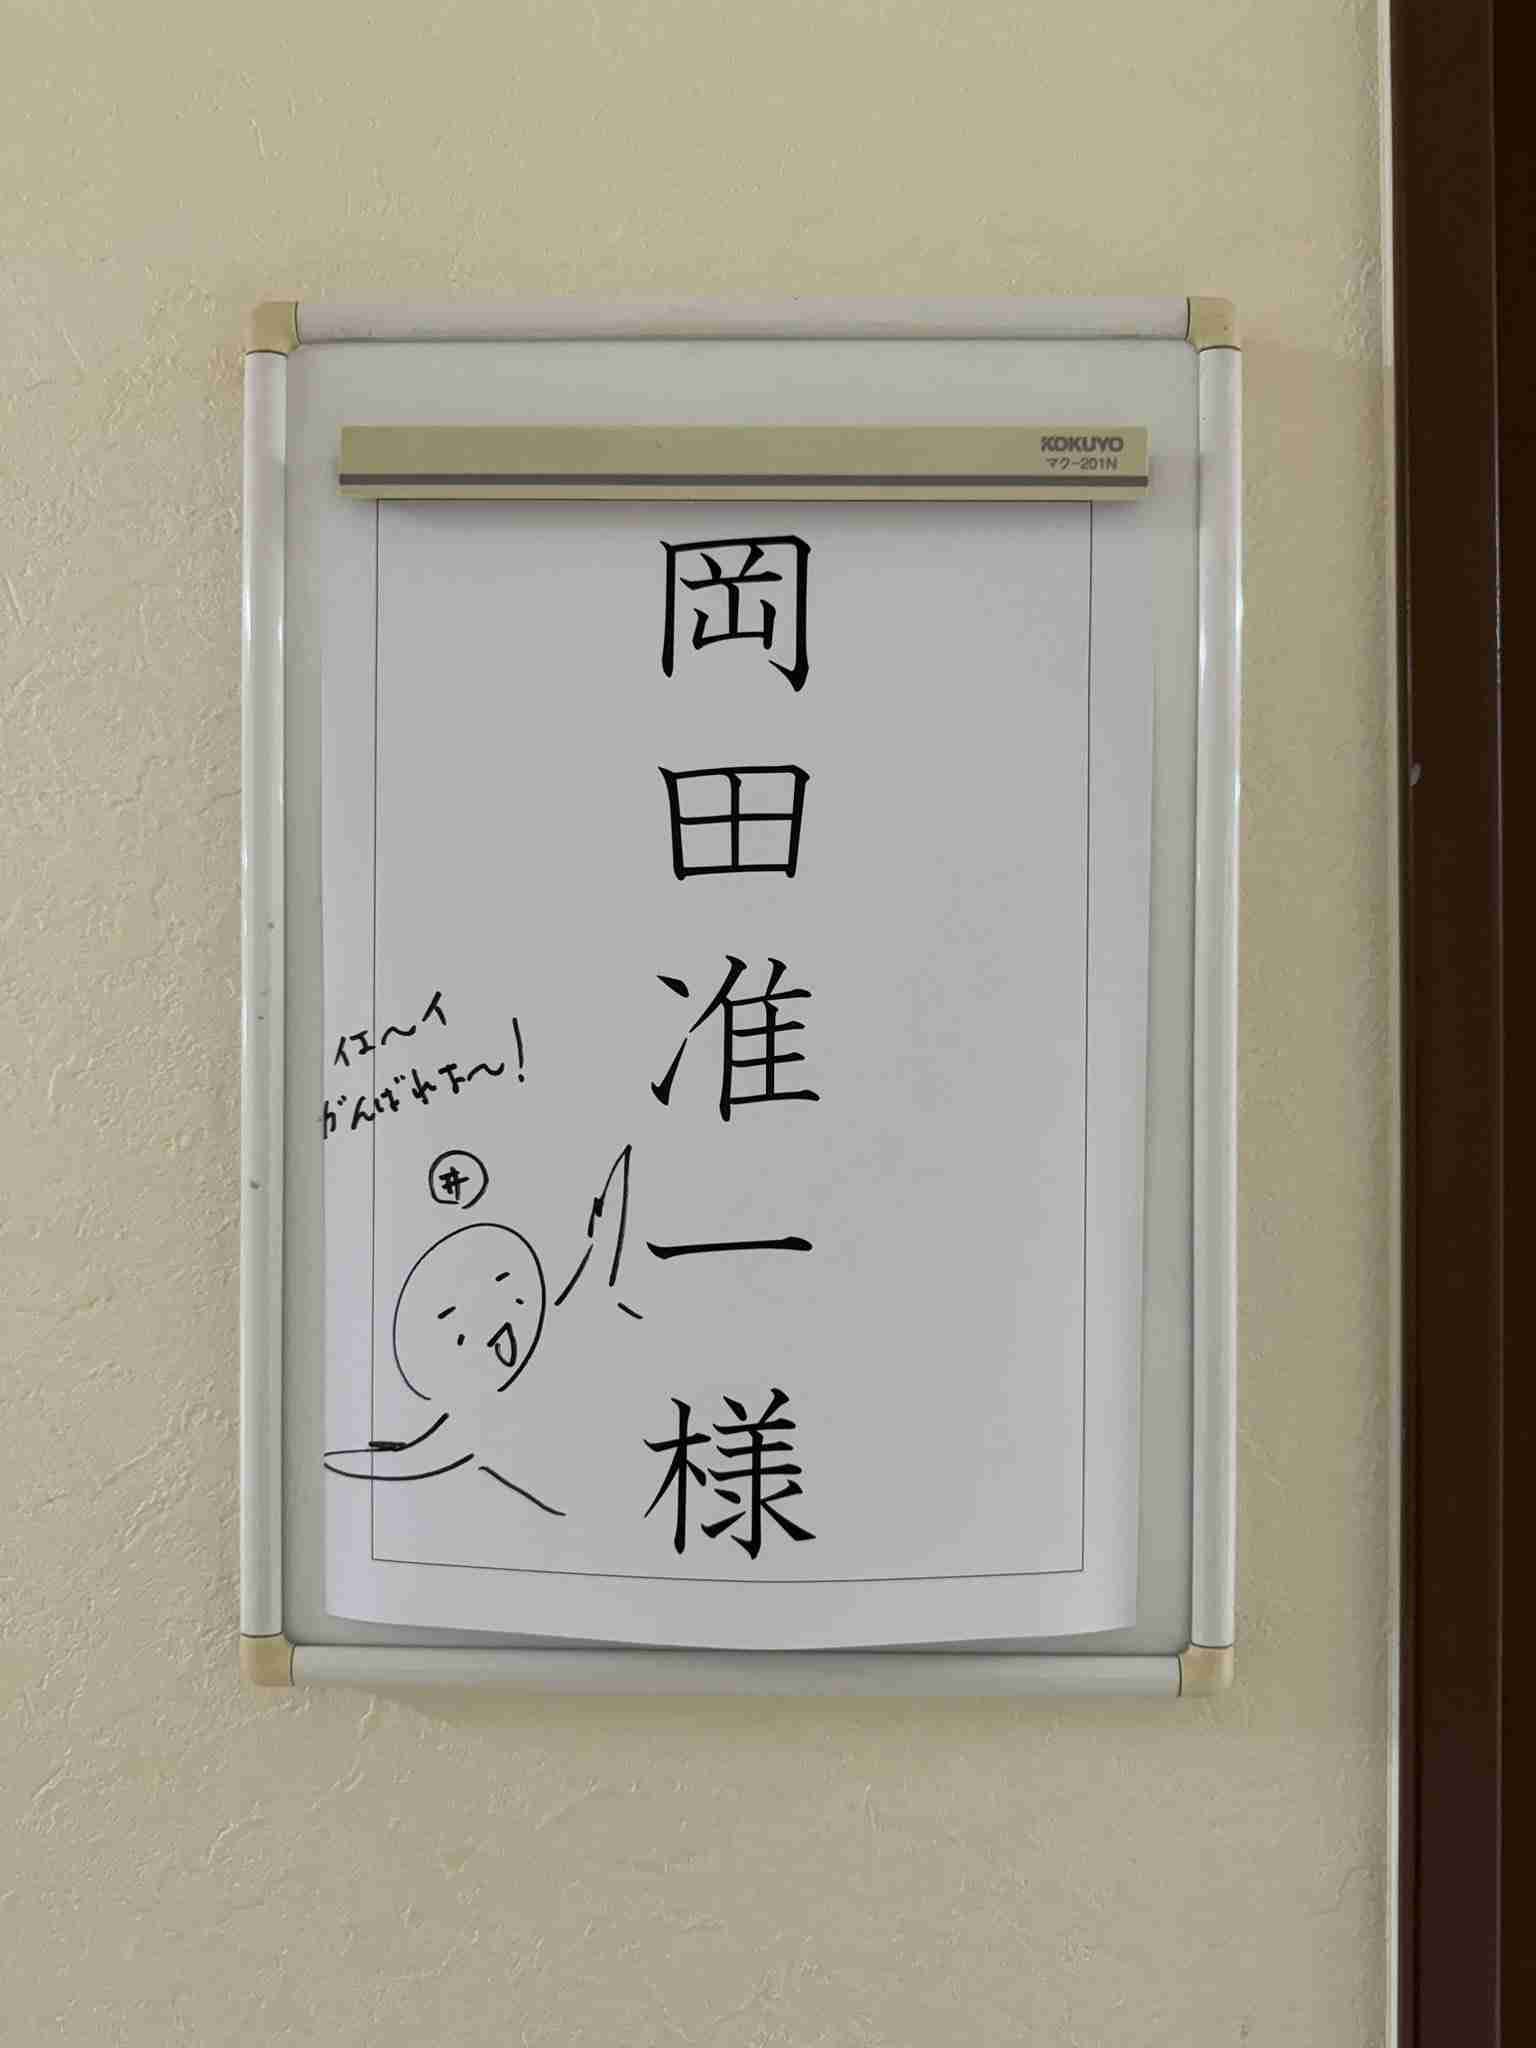 KOKUYO
マク-201N
岡田准一様
イエ〜イ
がんばれよ〜!
井